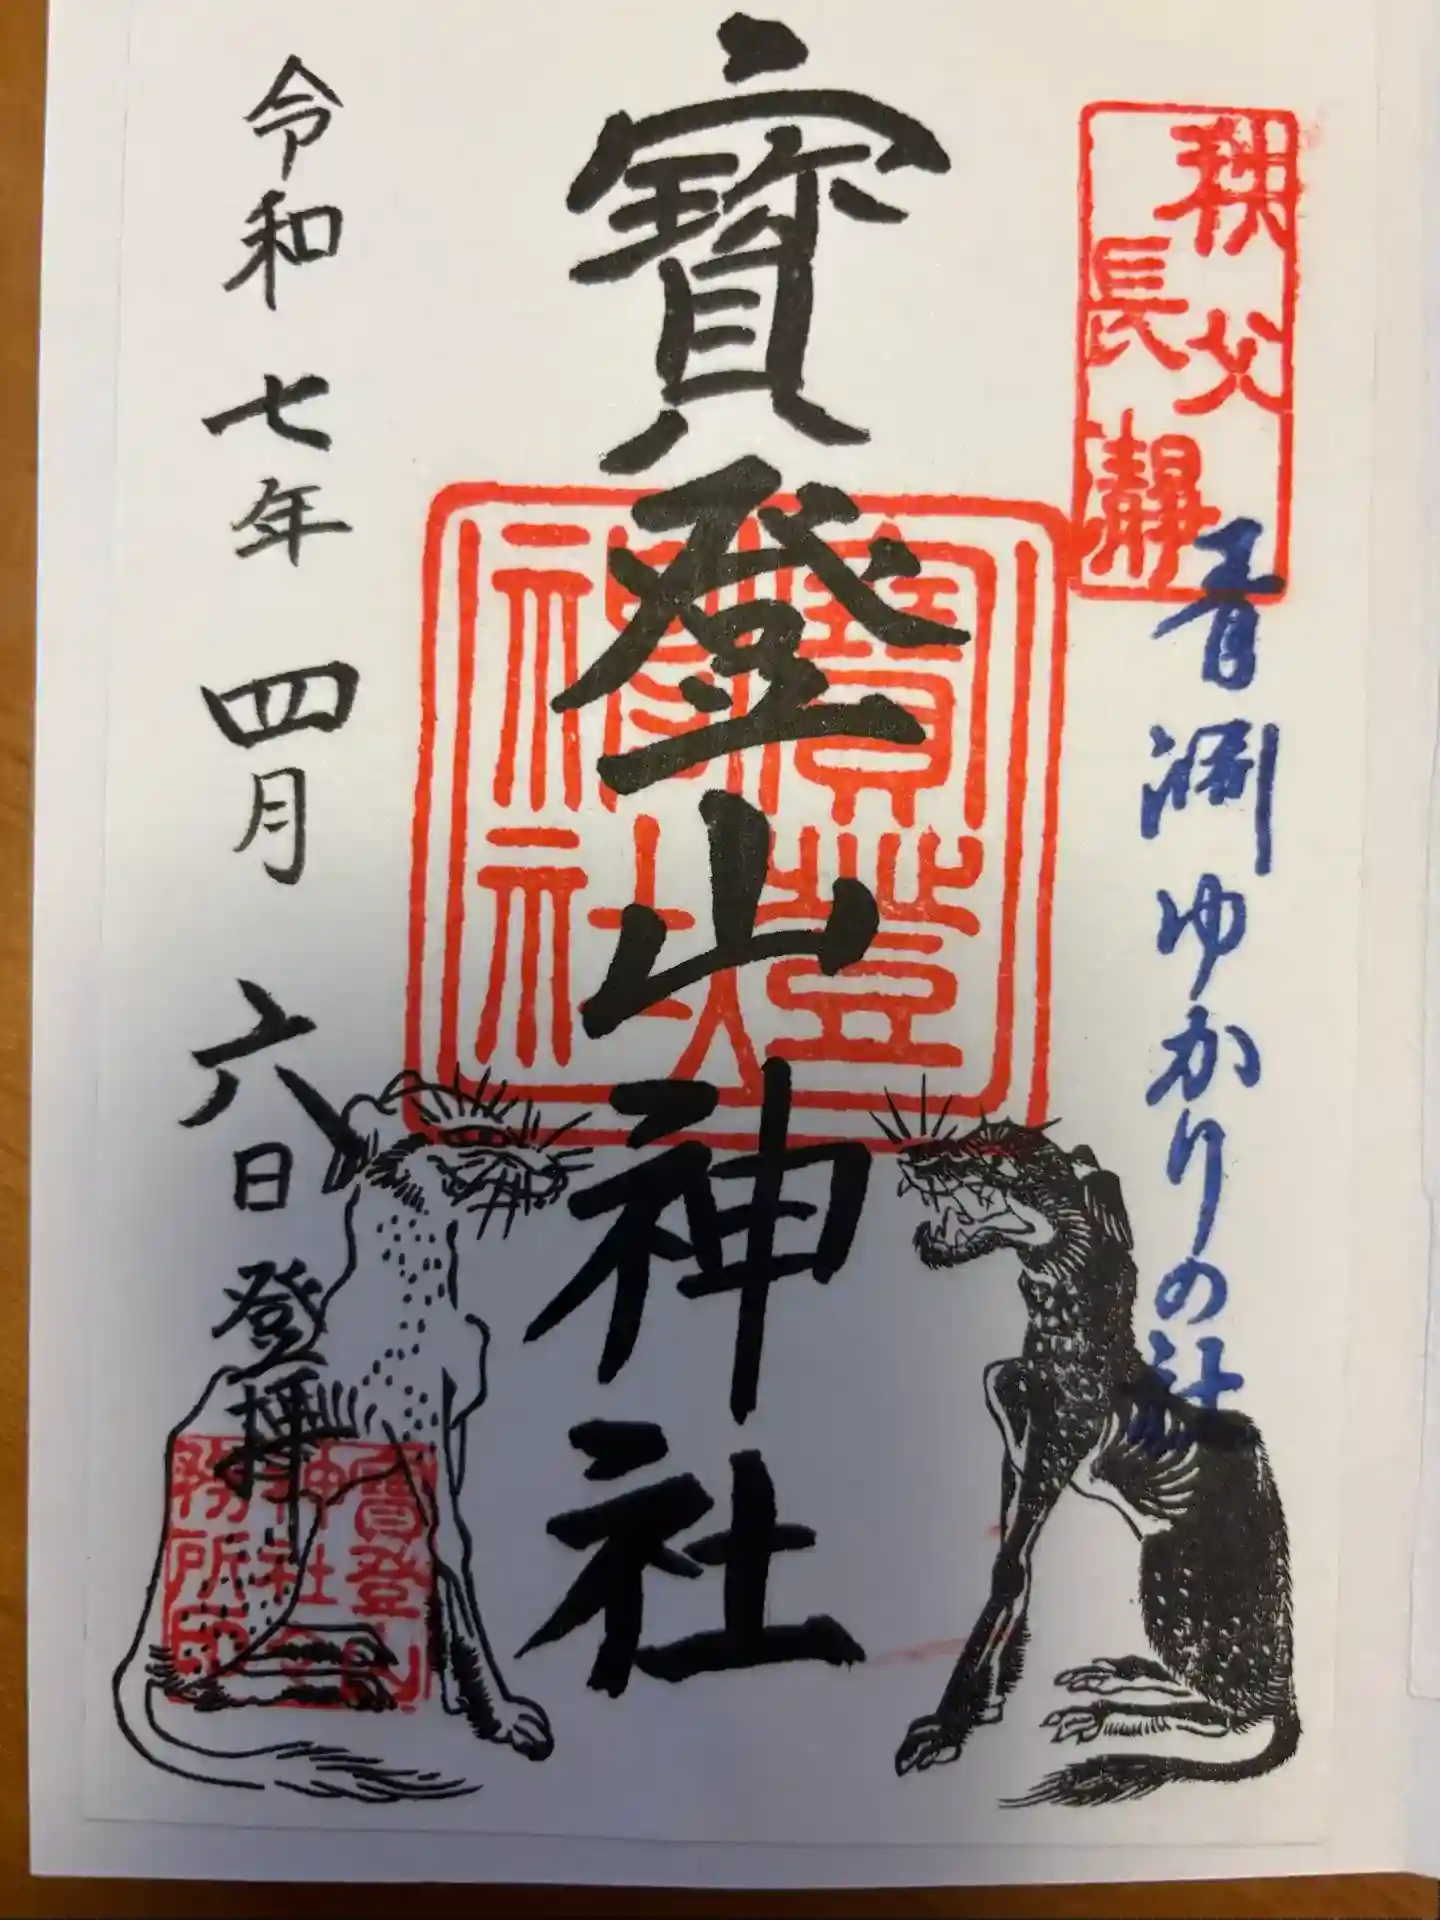 秩父
長瀞
青淵ゆかりの社
寶登山神社
寶登
神社
令和七年四月六日登拝
寶登山
神社
務所印